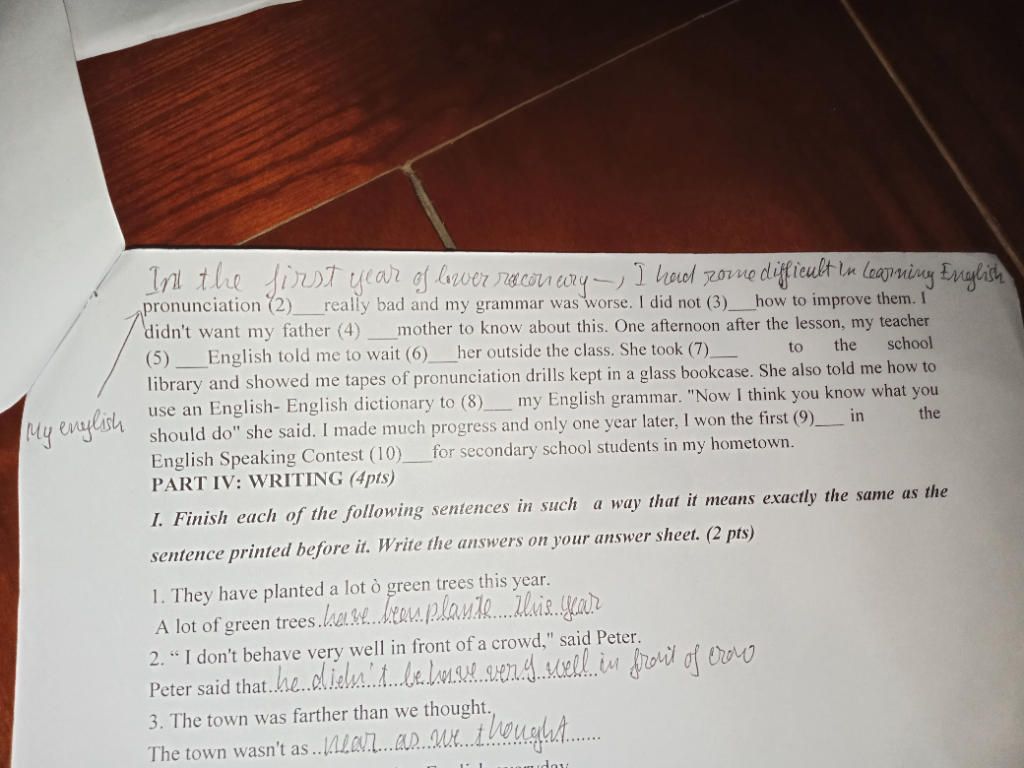 In the first year of lower secondary, I had some difficult In learning English
pronunciation (2)___really bad and my grammar was worse. I did not (3)___how to improve them. I
didn't want my father (4) ___mother to know about this. One afternoon after the lesson, my teacher
(5) ___English told me to wait (6)___her outside the class. She took (7)___ to the school
library and showed me tapes of pronunciation drills kept in a glass bookcase. She also told me how to
use an English- English dictionary to (8)___ my English grammar. "Now I think you know what you
My english
should do" she said. I made much progress and only one year later, I won the first (9)___ in the
English Speaking Contest (10)___for secondary school students in my hometown.
PART IV: WRITING (4pts)
I. Finish each of the following sentences in such a way that it means exactly the same as the
sentence printed before it. Write the answers on your answer sheet. (2 pts)
1. They have planted a lot ò green trees this year.
A lot of green trees have been plante this year
2. “ I don't behave very well in front of a crowd," said Peter.
Peter said that he didn't behave very well in front of crow
3. The town was farther than we thought.
The town wasn't as near as we thought